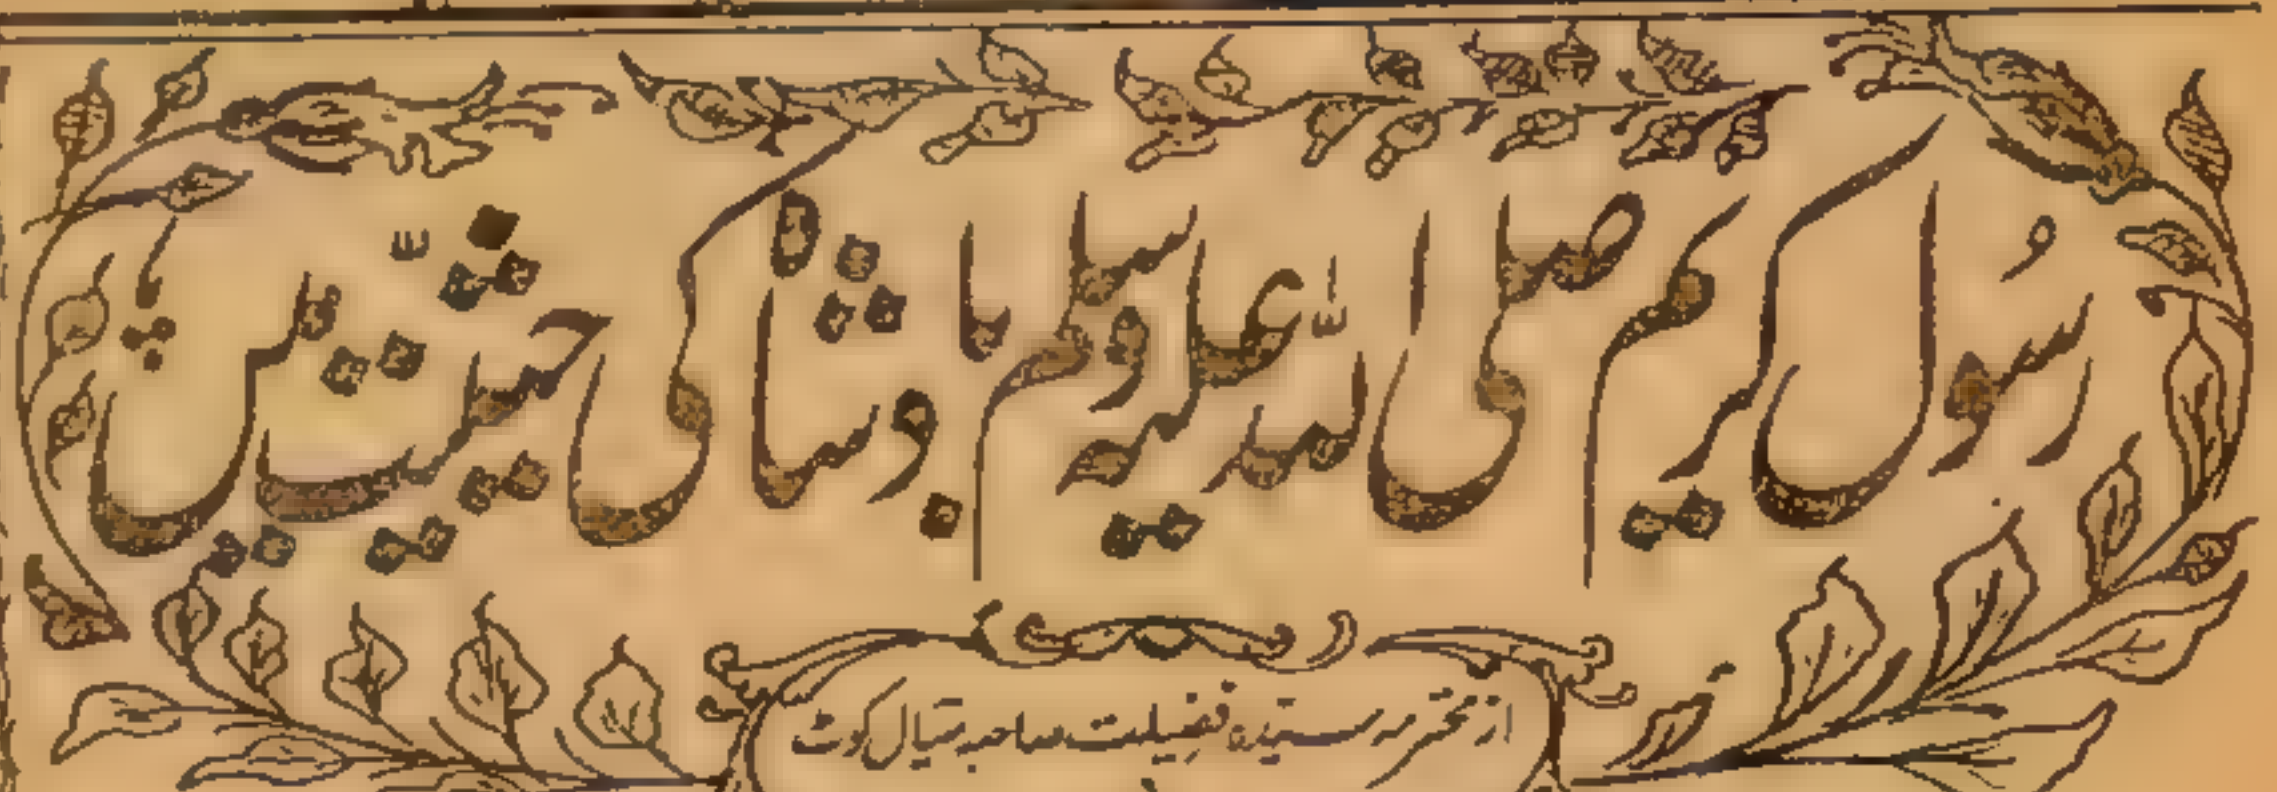 رسول کریم صلی اللہ علیہ وسلم بادشاہ کی حیثیت میں
از محترمہ سیدہ فضیلت صاحبہ سیالکوٹ